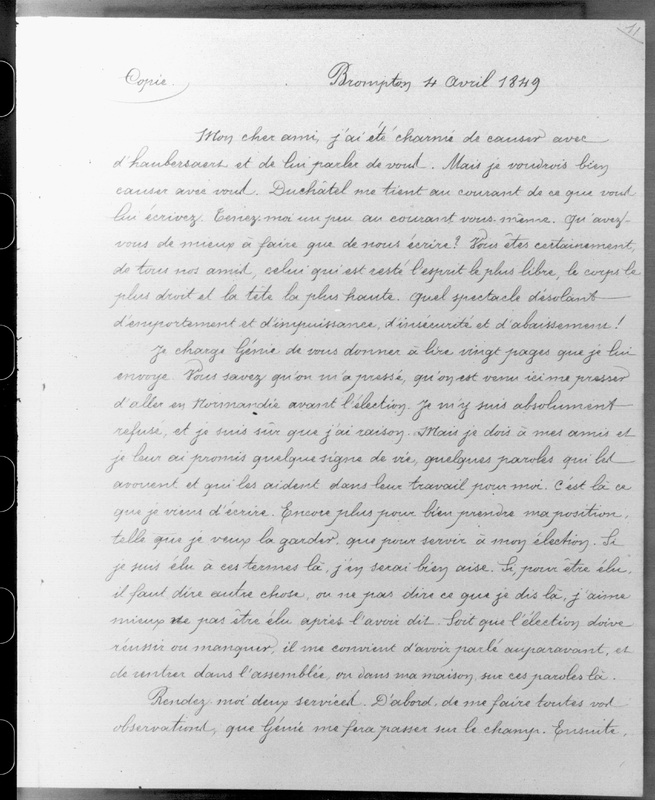 11
Copie.
Brompton 4 Avril 1849
Mon cher ami, j'ai été charmé de causer avec
d'haubersaers et de lui parler de vous. Mais je voudrois bien
causer avec vous. Duchâtel me tient au courant de ce que vous
lui écrivez. Tenez-moi un peu au courant vous-même. Qu'avez-
vous de mieux à faire que de nous écrire? Vous êtes certainement,
de tous nos amis, celui qui est resté l'esprit le plus libre, le corps le
plus droit et la tête la plus haute. Quel spectacle désolant
d'emportement et d'impuissance, d'insécurité et d'abaissement!
Je charge Génie de vous donner à lire vingt pages que je lui
envoye. Vous savez qu'on m'a pressé, qu'on est venu ici me presser
d'aller en Normandie avant l'élection. Je m'y suis absolument
refusé, et je suis sûr que j'ai raison. Mais je dois à mes amis et
je leur ai promis quelque signe de vie, quelques paroles qui les
avouent et qui les aident dans leur travail pour moi. C'est là ce
que je viens d'écrire. Encore plus pour bien prendre ma position,
telle que je veux la garder, que pour servir à mon élection. Si
je suis élu à ces termes là, j'en serai bien aise. Si, pour être élu,
il faut dire autre chose, ou ne pas dire ce que je dis là, j'aime
mieux ne pas être élu après l'avoir dit. Soit que l'élection doive
réussir ou manquer, il me convient d'avoir parlé auparavant, et
de rentrer dans l'assemblée, ou dans ma maison, sur ces paroles là.
Rendez moi deux services. D'abord, de me faire toutes vos
observations, que Génie me fera passer sur le champ. Ensuite,